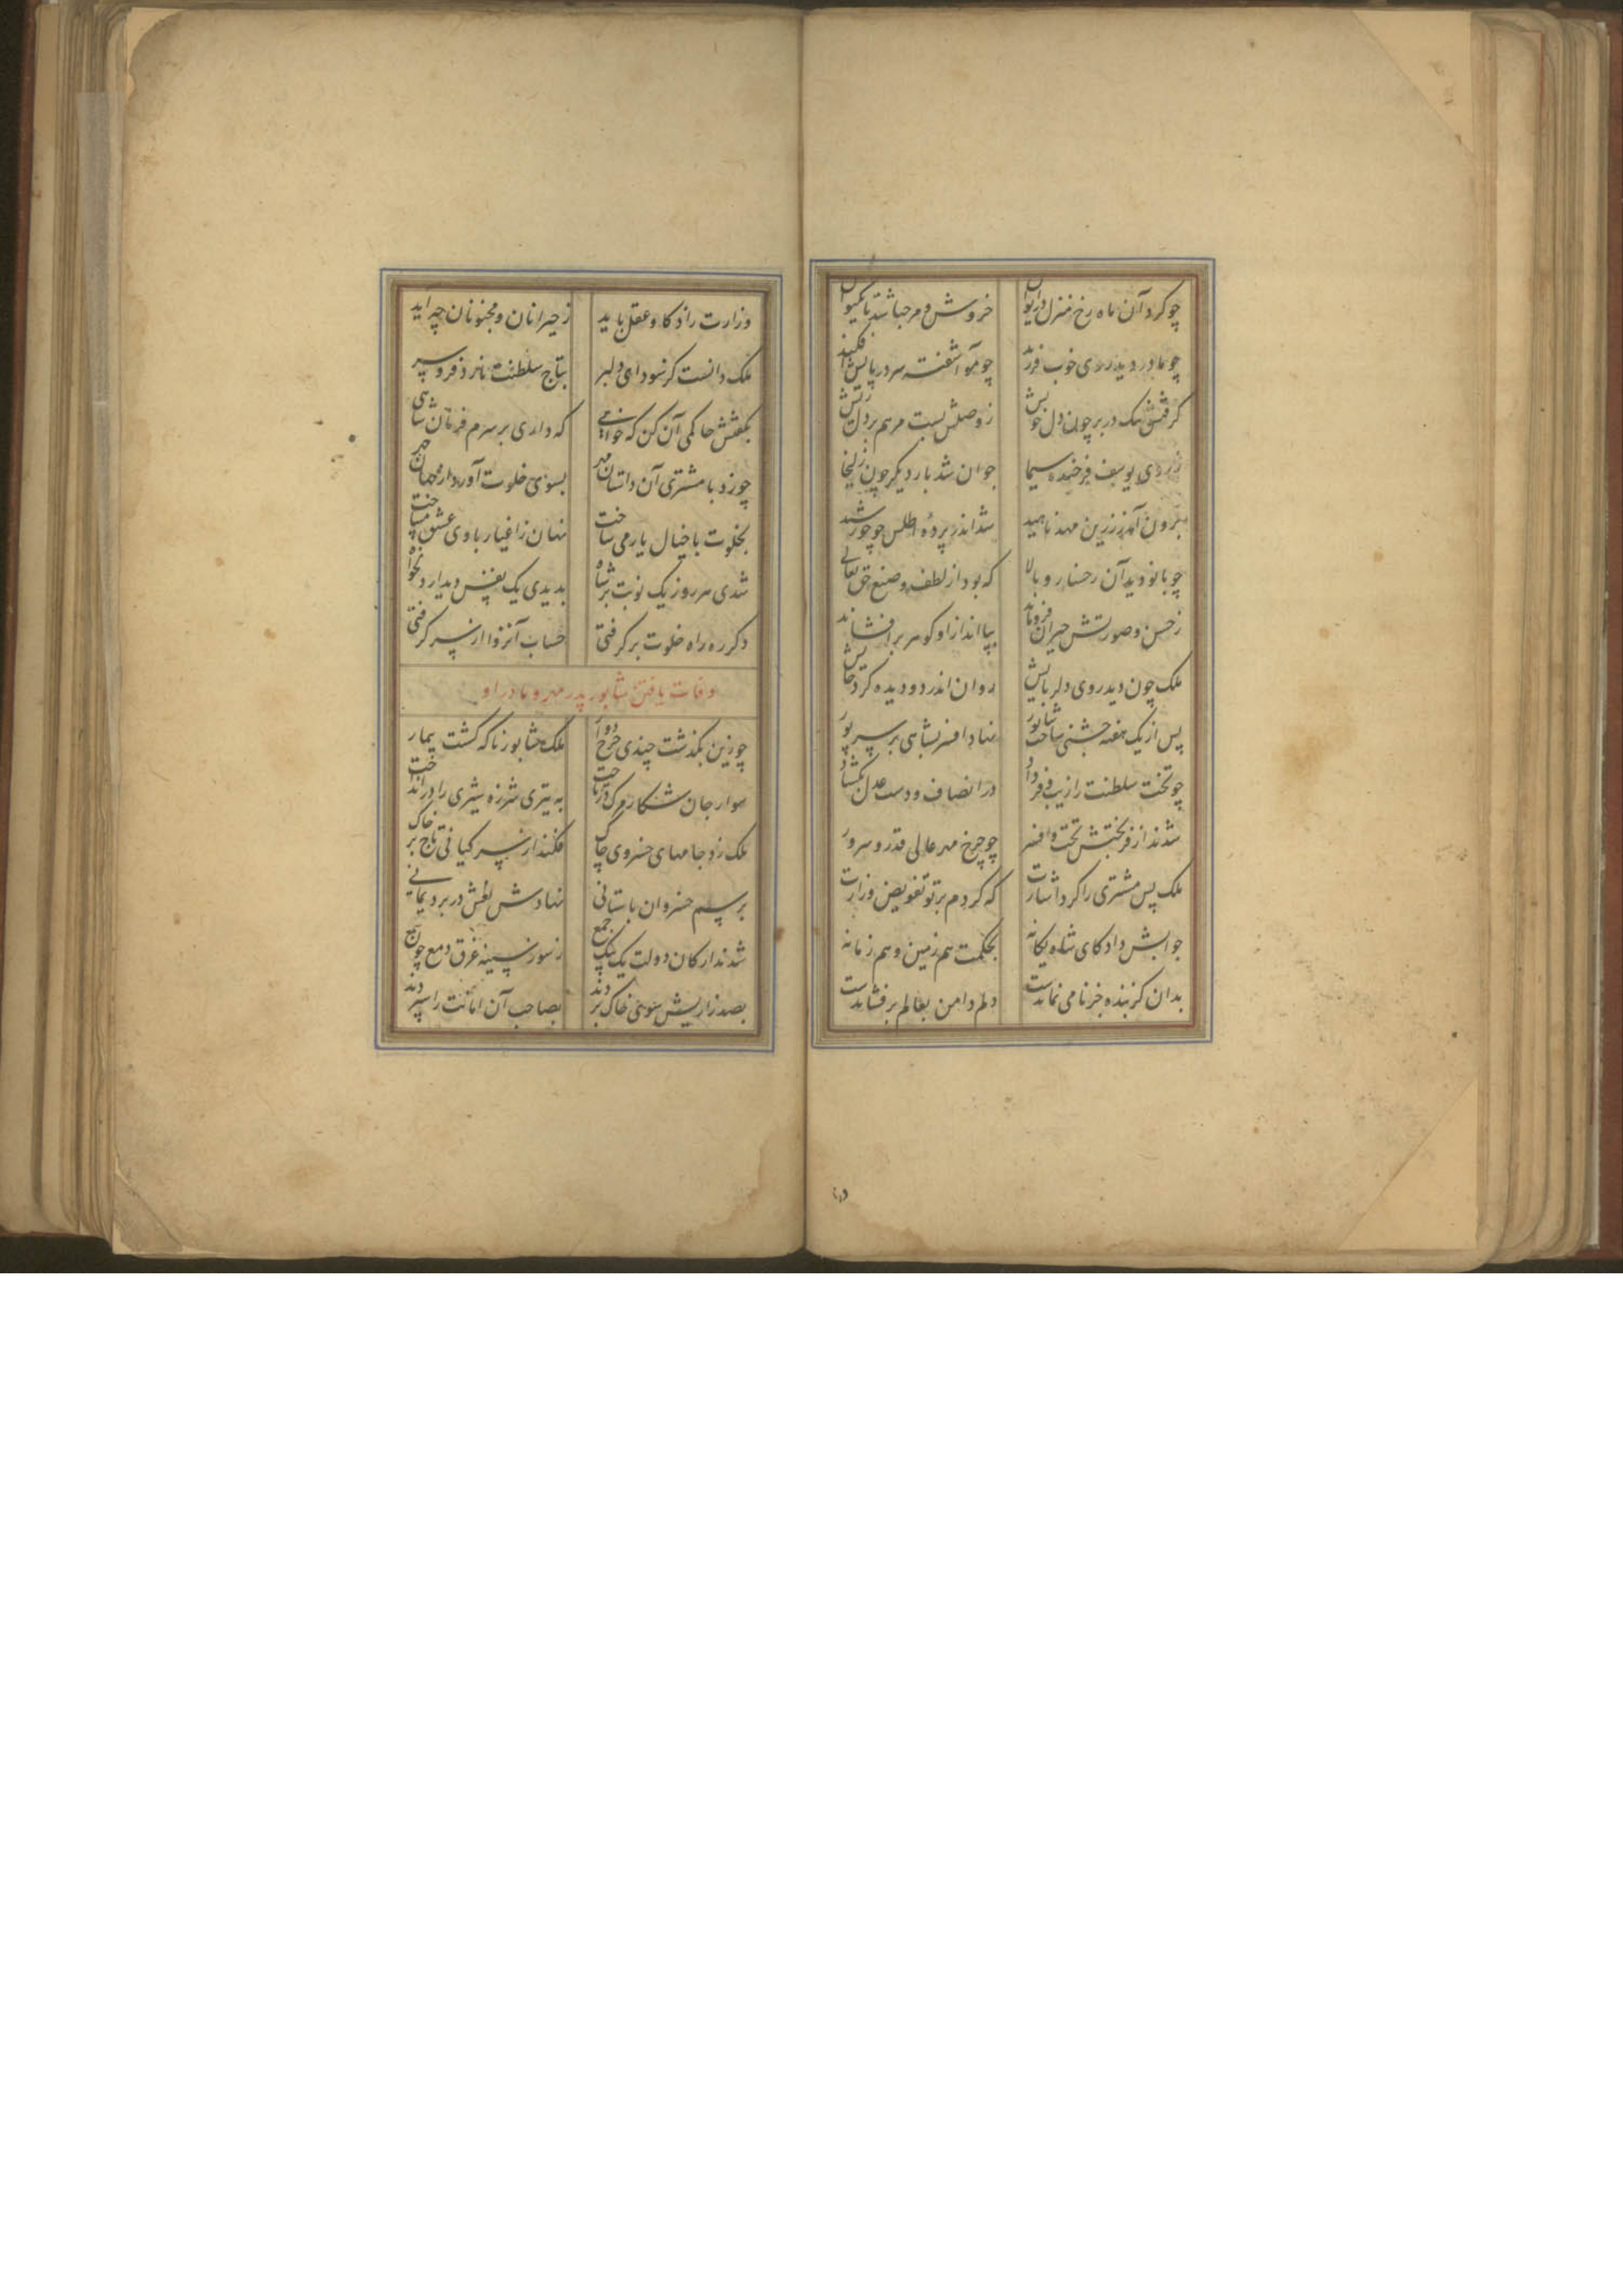 چو کرد آن ماه رخ منزل در ایوان خروش و مرحبا شد تا بکیوان
چو مادر دید روی خوب فرزند چو مو آشفته سر در پایش افکند
گرفتش تنگ در بر چون دل خویش ز وصلش بست مرهم بر دل ریش
ز روی یوسف فرخنده سیما جوان شد بار دیگر چون زلیخا
برون آمد ز زرین مهد ناهید شد اندر پرده اطلس چو خورشید
چو بانو دید آن رخسار و بالا که بود از لطف و صنع حق تعالی
ز حسن و صورتش حیران فروماند بپا انداز او گوهر برافشاند
ملک چون دید روی دلربایش روان اندر دو دیده کرد جایش
پس از یک هفته جشنی ساخت شاپور نهاد افسر بشاهی بر سر پور
چو تخت سلطنت را زیب و فر داد در انصاف و دست عدل بگشاد
شدند از فر بختش تخت و افسر چو چرخ مهر عالی قدر و سرور
ملک پس مشتری را کرد اشارت که کردم بر تو تفویض وزارت
جوابش داد کای شاه یگانه بحکمت هم زمین و هم زمانه
بدان کز بنده جز نامی نماندست دلم دامن بعالم برفشاندست
وزارت را ذکا و عقل باید ز حیرانان و مجنونان چه آید
ملک دانست کز سودای دلبر بتاج سلطنت نارد فرو سر
بگفتش حاکمی آن کن که خواهی که داری بر سرم فرمان شاهی
چو زد با مشتری آن داستان مهر بسوی خلوت آورد از جهان چهر
بخلوت با خیال یار می ساخت نهان ز اغیار با وی عشق میباخت
شدی هر روز یک نوبت بر شاه بدیدی یک نفس دیدار دلخواه
دگر ره راه خلوت برگرفتی حساب آنزوا از سر گرفتی
وفات یافتن شاپور پدر مهر و مادر او
چو زین بگذشت چندی چرخ دوار ملک شاپور ناگه گشت بیمار
سوار جان شکار مرگ در تاخت به تیری شرزه شیری را درانداخت
ملک زد جامهای خسروی چاک فکند از سر کیانی تاج بر خاک
برسم خسروان باستانی نهادش نعش در برد یمانی
شدند ارکان دولت یک بیک جمع ز سوز سینه غرق دمع چون شمع
بصد زاریش سوی خاک بردند بصاحب آن امانت را سپردند